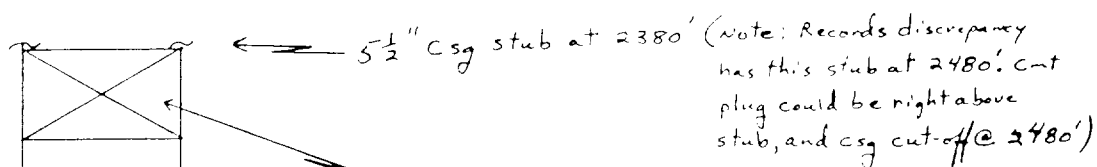 5½" Csg stub at 2380' (Note: Records discrepancy
has this stub at 2480'. Cmt
plug could be right above
stub, and csg cut-off @ 2480')